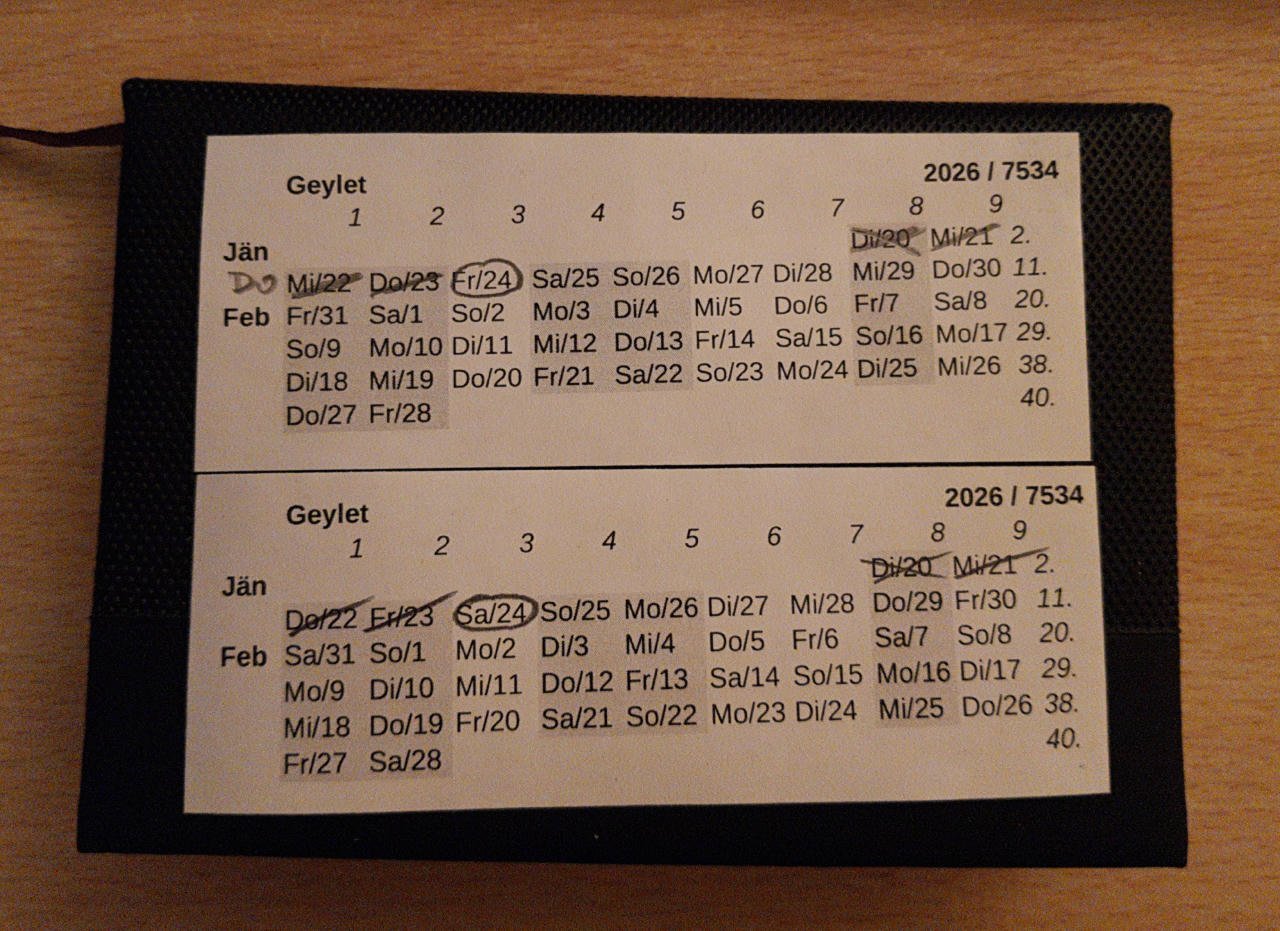 Geylet 2026 / 7534
1 2 3 4 5 6 7 8 9
Jän Di/20 Mi/21 2.
Do Mi/22 Do/23 Fr/24 Sa/25 So/26 Mo/27 Di/28 Mi/29 Do/30 11.
Feb Fr/31 Sa/1 So/2 Mo/3 Di/4 Mi/5 Do/6 Fr/7 Sa/8 20.
So/9 Mo/10 Di/11 Mi/12 Do/13 Fr/14 Sa/15 So/16 Mo/17 29.
Di/18 Mi/19 Do/20 Fr/21 Sa/22 So/23 Mo/24 Di/25 Mi/26 38.
Do/27 Fr/28 40.
Geylet 2026 / 7534
1 2 3 4 5 6 7 8 9
Jän Di/20 Mi/21 2.
Do/22 Fr/23 Sa/24 So/25 Mo/26 Di/27 Mi/28 Do/29 Fr/30 11.
Feb Sa/31 So/1 Mo/2 Di/3 Mi/4 Do/5 Fr/6 Sa/7 So/8 20.
Mo/9 Di/10 Mi/11 Do/12 Fr/13 Sa/14 So/15 Mo/16 Di/17 29.
Mi/18 Do/19 Fr/20 Sa/21 So/22 Mo/23 Di/24 Mi/25 Do/26 38.
Fr/27 Sa/28 40.